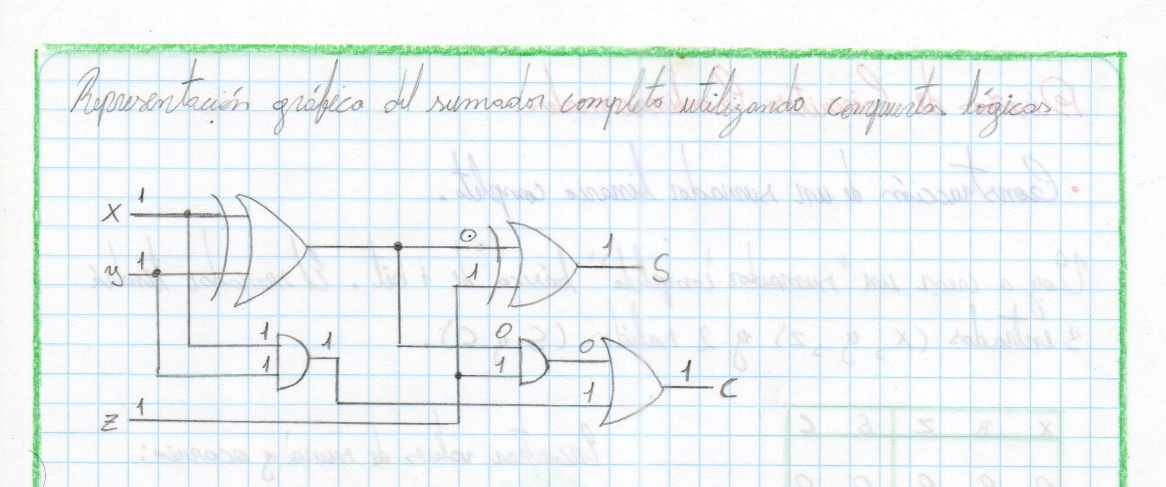 Representación gráfica del sumador completo utilizando compuertas lógicas
X 1
0 1 S
y 1
1
1 1 0 0
1 1 1 1 C
Z 1